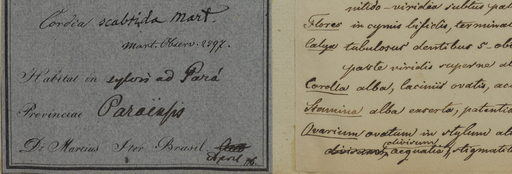 Cordia scabrida Mart.
Mart. Observ. 2297.
Habitat in sylvis ad Pará
Provinciae Paraënsis
Dr. Martius Iter Brasil. April
nitido-viridia subtus
Flores in cymis bifidis, terminal
Calyx tubulosus dentibus 5-
parte viridis superne
Corolla alba, laciniis ovatis,
Stamina alba exserta, patentia
Ovarium ovatum in stylum
divisum
aequalia, stigmat